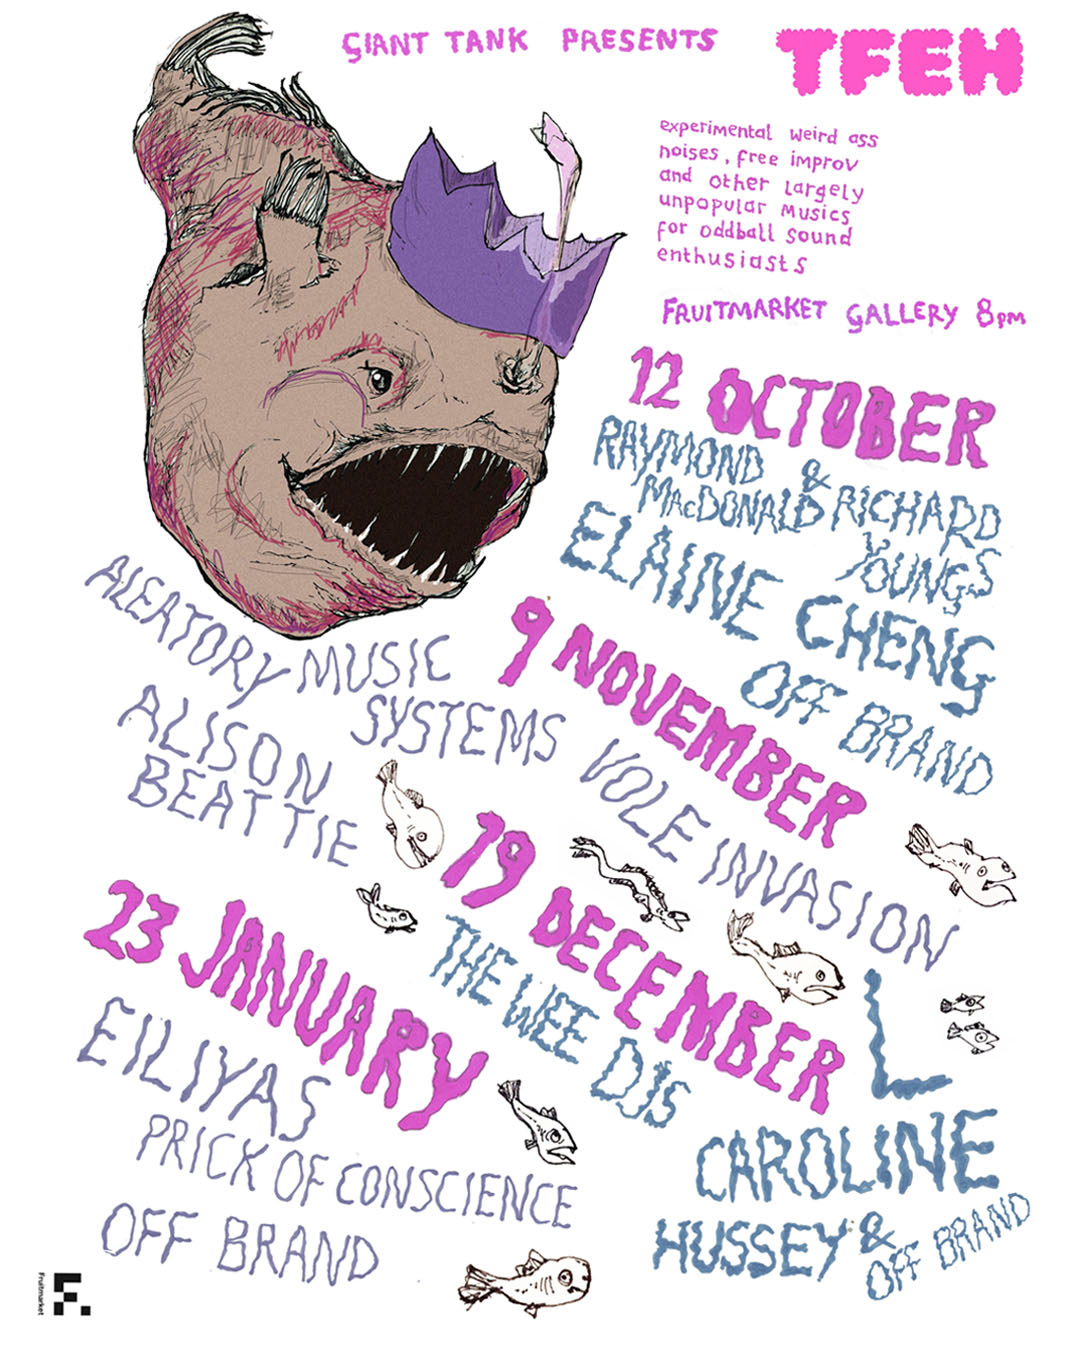 GIANT TANK PRESENTS
TFEH
experimental weird ass
noises, free improv
and other largely
unpopular musics
for oddball sound
enthusiasts
FRUITMARKET GALLERY 8pm
12 OCTOBER
RAYMOND
MACDONALD & RICHARD
YOUNGS
ELAINE CHENG
OFF BRAND
9 NOVEMBER
ALEATORY MUSIC
SYSTEMS
ALISON
BEATTIE
VOLE INVASION
19 DECEMBER
THE WEE DJs
L
CAROLINE
HUSSEY &
OFF BRAND
23 JANUARY
EILIYAS
PRICK OF CONSCIENCE
OFF BRAND
Fruitmarket
F.